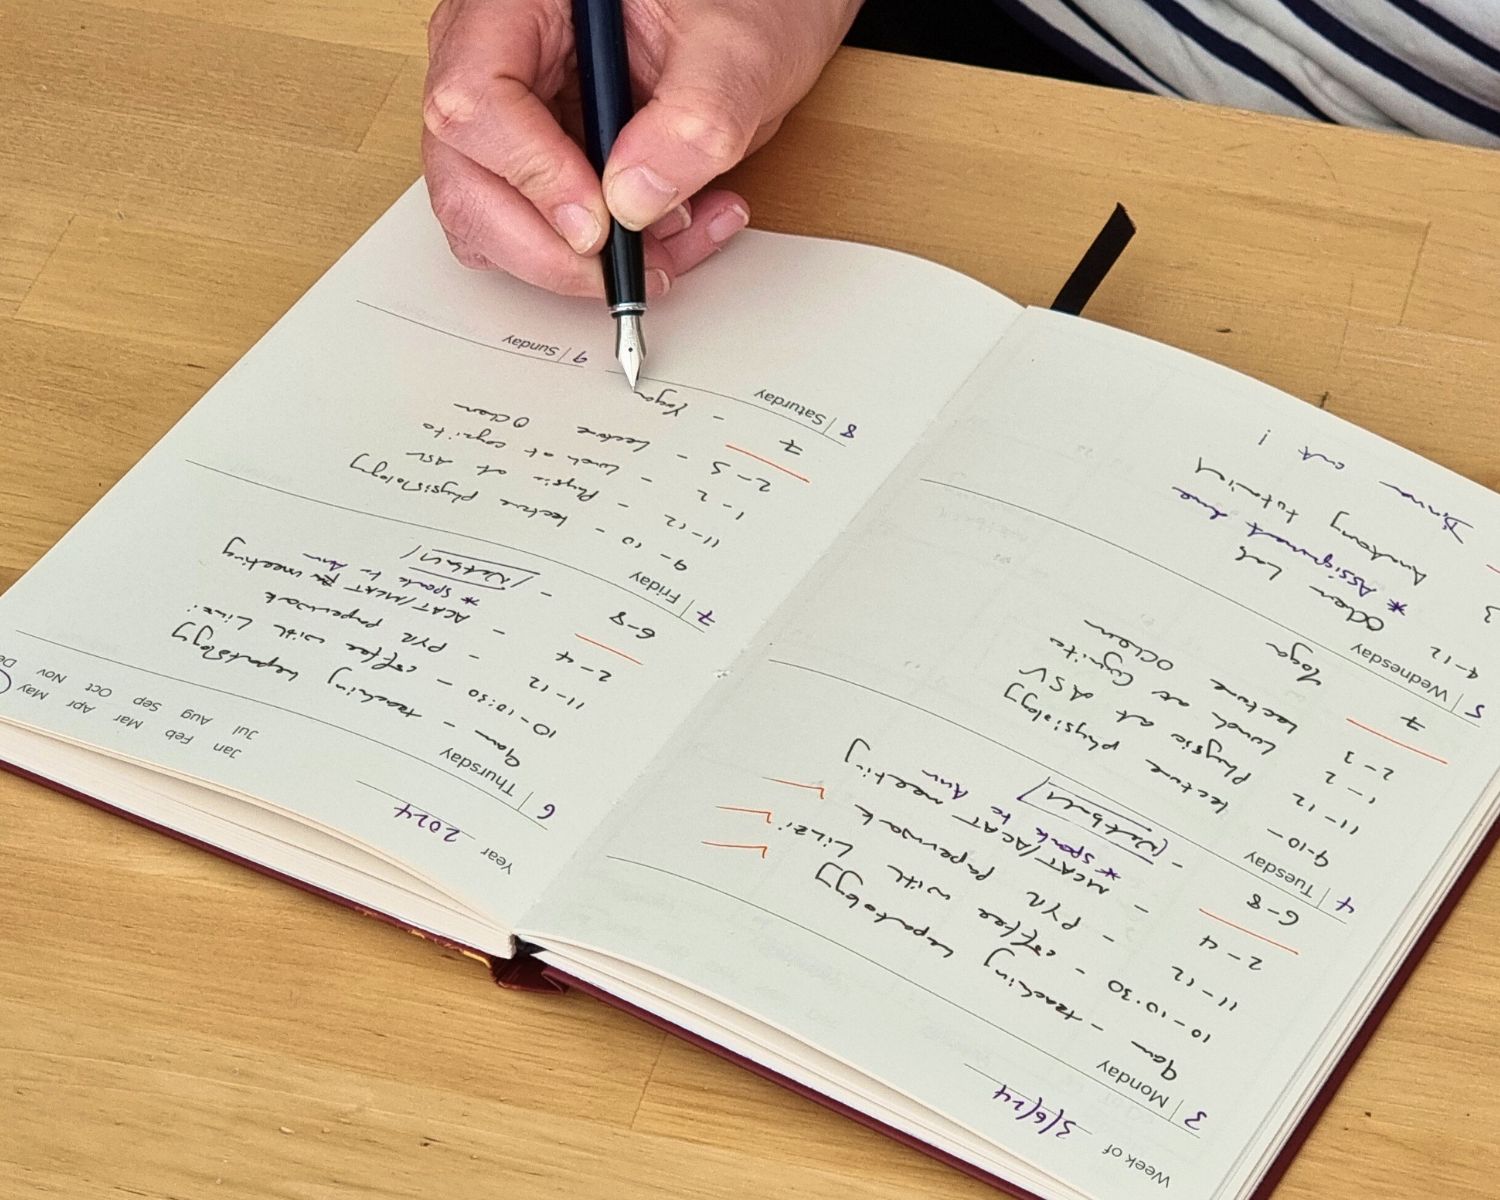 Week of 3/6/24
3 | Monday
9am - teaching hepatology
10-10:30 - coffee with Lizzi
11-12 - PYR paperwork
2-4 - MCAT/ACAT meeting
* speak to Ann
6-8 - Netball
4 | Tuesday
9-10 - lecture physiology
11-12 Physio at ASV
1-2 Lunch at Cognito
2-3 lecture OChem
7 Yoga
5 | Wednesday
9-12 OChem Lab
* Assignment due
Anatomy tutorial
Dinner out
Year 2024
Jan Feb Mar Apr May
Jul Aug Sep Oct Nov De
6 | Thursday
9am - teaching hepatology
10-10:30 - coffee with Lizzi
11-12 - PYR paperwork
2-4 - ACAT/MCAT meeting
* speak to Ann
6-8 - Netball
7 | Friday
9-10 - lecture physiology
11-12 - Physio at ASV
1-2 - Lunch at cognito
2-3 - lecture OChem
7 - Yoga
8 | Saturday
9 | Sunday